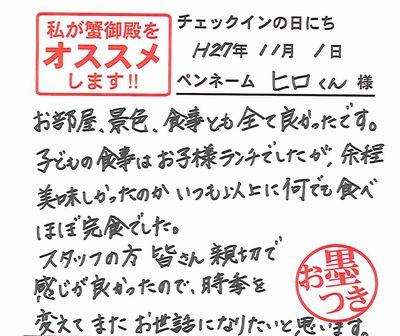 私が蟹御殿を
オススメ
します!!
チェックインの日にち
H27年 11月 1日
ペンネーム ヒロくん 様
お部屋、景色、食事とも全て良かったです。
子どもの食事はお子様ランチでしたが、余程
美味しかったのか いつも以上に何でも食べ
ほぼ完食でした。
スタッフの方 皆さん 親切で
感じが良かったので、時季を
変えて また お世話になりたいと思います。
お墨つき